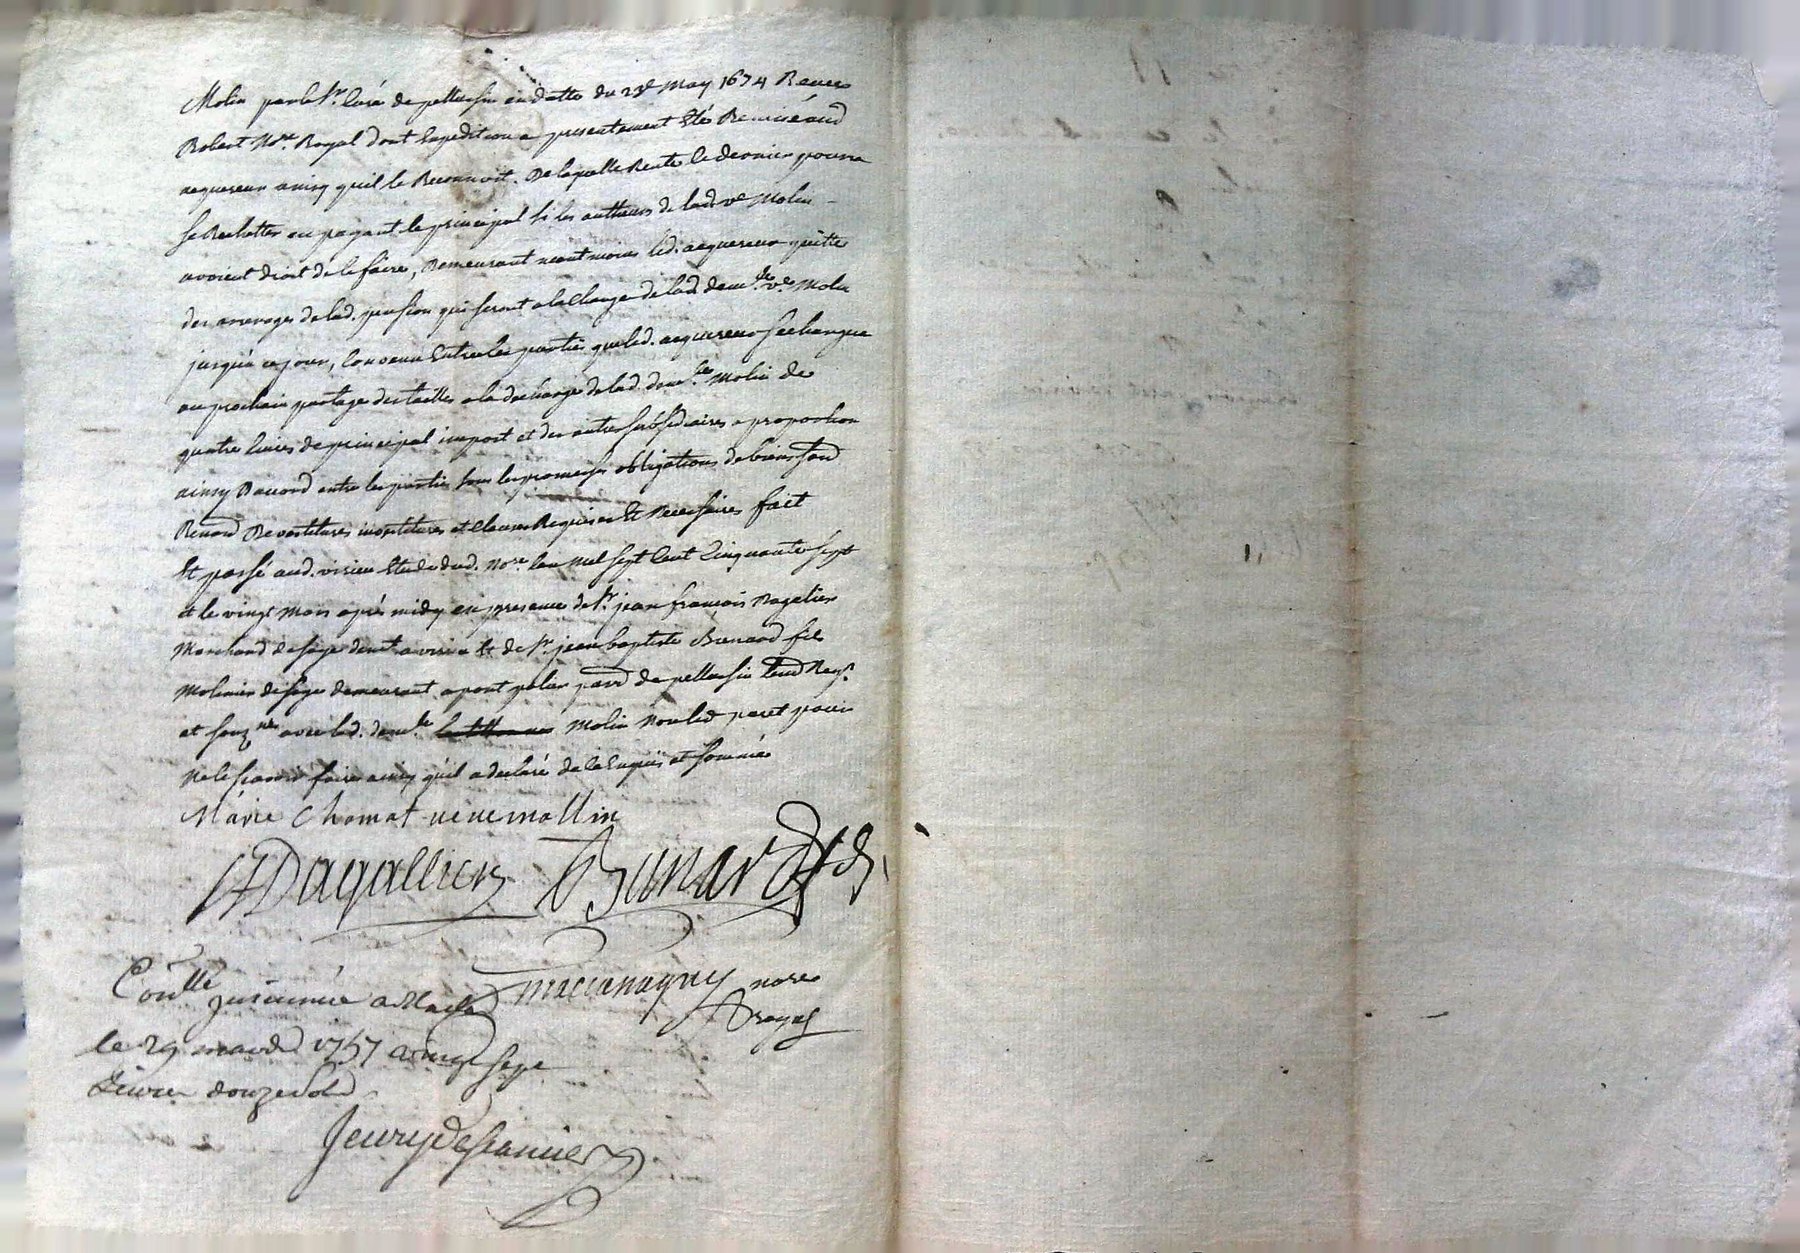 Molin par le Sr. Curé de pellussin en datte du 23e may 1674 Receu
Robert Nore. Royal dont Expedition a presentement Eté Remise aud
acquereur ainsy quil le Reconnoit. De laquelle Rente le dernier pourra
se Rachetter en payant le principal si les autheurs de lad. ve Molin
avoient droit de le faire, Demeurant neantmoins led. acquereur quitte
des arrerages de lad. pension qui seront a la Charge de lad. demlle. ve Molin
jusqu'a ce jour, Convenu Entre les parties que led. acquereur se chargera
au prochain partage des tailles a la decharge de lad. demlle. Molin de
quatre livres de principal import et des autres subsidiaires a proportion
ainsy Daccord entre les parties sous les promesses obligations de biens
Renond Devestitures investitures et Clauses Requises Et Necessaires fait
Et passé aud. virieu Etude dud. Nore. lan mil sept Cent Cinquante sept
et le vingt Mars aprés midy en presence de Sr. jean francois Dagalier
Marchand de soye demt. a virieu Et de Sr. jean baptiste Benard fils
Molinier de soye demeurant a pont palin parr. de pellussin
et avec lad. demlle. Molin Non led. paret pour
Ne le scavoir faire ainsy quil a declaré de ce Enquis et sommé
Marie Chomat veuve mollin
Dagallier Benard fils
Conllé a
nore
royal
le 29 mars 1757
Livres douze sols